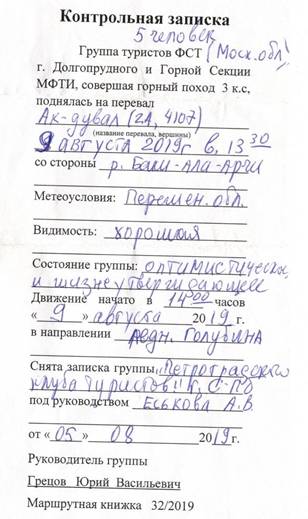 Контрольная записка
5 человек
Группа туристов ФСТ (Моск. обл)
г. Долгопрудного и Горной Секции
МФТИ, совершая горный поход 3 к.с,
поднялась на перевал
Ак-дувал (2А, 4107)
(название перевала, вершины)
9 августа 2019г в 13 30
со стороны р. Баш-Ала-Арчи
Метеоусловия: Перемен. обл.
Видимость: хорошая
Состояние группы: оптимистическ
и жизнеутверждающее
Движение начато в 14 00 часов
«9» августа 2019 г.
в направлении ледн. Голубина
Снята записка группы "Петроградского
клуба туристов" г. С-Пб
под руководством Еськова А.В.
от «05» 08 2019 г.
Руководитель группы
Грецов Юрий Васильевич
Маршрутная книжка 32/2019